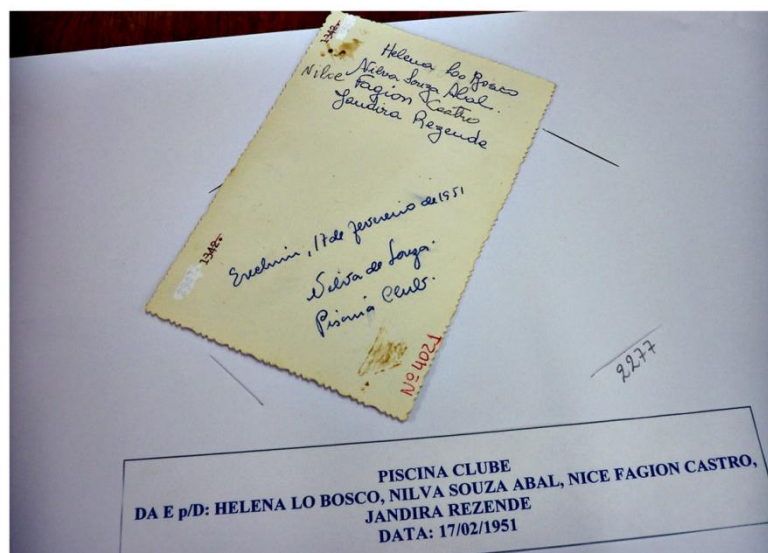 1342-
Helena Lo Bosco
Nilva Souza Abal.
Nilce Fagion Castro
Jandira Rezende
Erechim, 17 de fevereiro de 1951
Nilva de Souza.
Piscina Club.
1342-
Nº 4021
2277
PISCINA CLUBE
DA E p/D: HELENA LO BOSCO, NILVA SOUZA ABAL, NICE FAGION CASTRO,
JANDIRA REZENDE
DATA: 17/02/1951